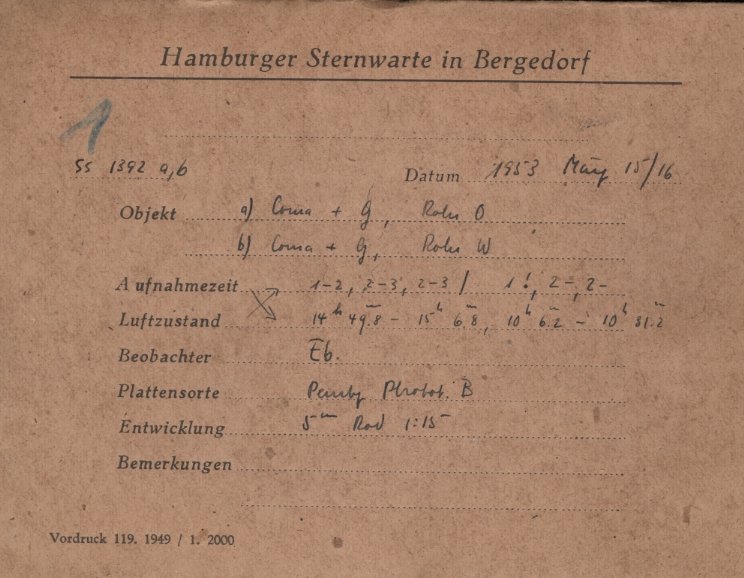 Hamburger Sternwarte in Bergedorf
1
SS 1392 a,b Datum 1953 März 15/16
Objekt a) Coma + G, Rohr O
b) Coma + G, Rohr W
Aufnahmezeit 1-2, 2-3, 2-3 / 1!, 2-, 2-
Luftzustand 14ʰ 49.ᵐ8 - 15ʰ 6.ᵐ8, 10ʰ 6.ᵐ2 - 10ʰ 31.ᵐ2
Beobachter Eb.
Plattensorte B
Entwicklung 5ᵐ Rod 1:15
Bemerkungen
Vordruck 119. 1949 / 1. 2000